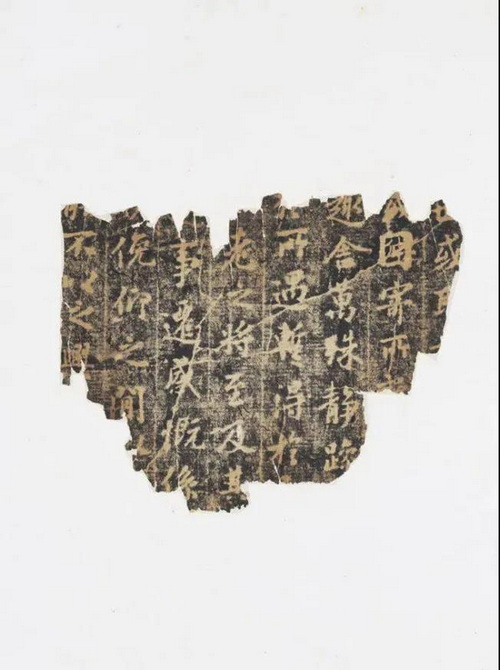 或
因寄所
舍萬殊靜躁
所遇暫得於
老之將至及其
事遷感慨係
俛仰之間
不以之興